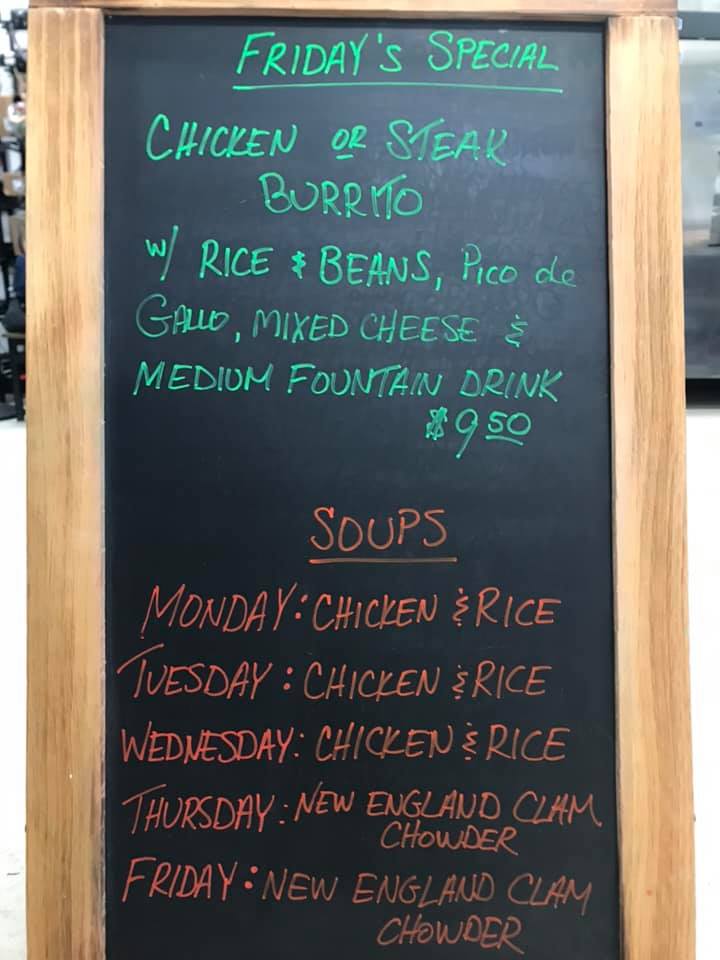 FRIDAY'S SPECIAL
CHICKEN OR STEAK
BURRITO
W/ RICE & BEANS, PICO de
GALLO, MIXED CHEESE &
MEDIUM FOUNTAIN DRINK
$9 50
SOUPS
MONDAY: CHICKEN & RICE
TUESDAY: CHICKEN & RICE
WEDNESDAY: CHICKEN & RICE
THURSDAY: NEW ENGLAND CLAM
CHOWDER
FRIDAY: NEW ENGLAND CLAM
CHOWDER